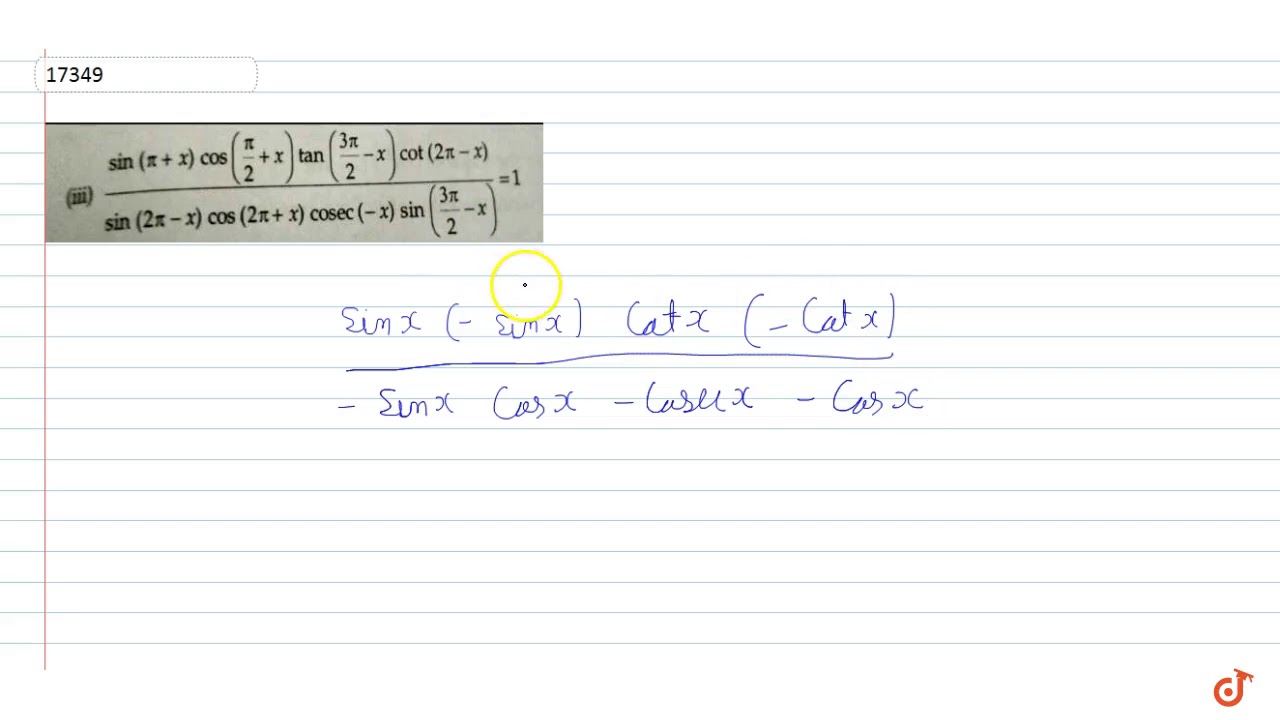 17349
(iii) sin (π + x) cos (π/2 + x) tan (3π/2 − x) cot (2π − x)
sin (2π − x) cos (2π + x) cosec (−x) sin (3π/2 − x) = 1
Sin x (− Sin x) Cot x (− Cot x)
− Sin x Cos x − Cosec x − Cos x